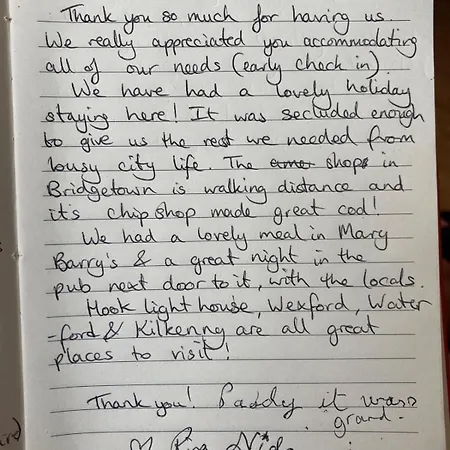 Thank you so much for having us.
We really appreciated you accommodating
all of our needs (early check in)
We have had a lovely holiday
staying here! It was secluded enough
to give us the rest we needed from
busy city life. The shops in
Bridgetown is walking distance and
it's chip shop made great cod!
We had a lovely meal in Mary
Barry's & a great night in the
pub next door to it, with the locals.
Hook light house, Wexford, Water
-ford & Kilkenny are all great
places to visit!
Thank you! Paddy it was
grand.